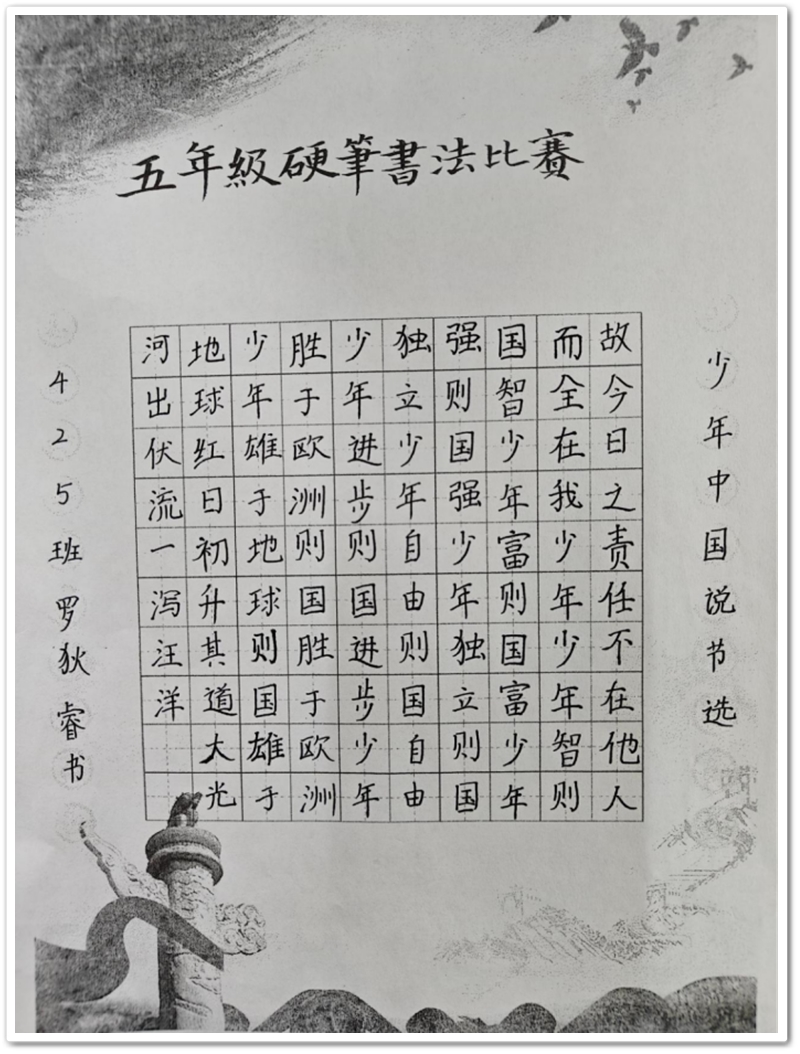 五年級硬筆書法比賽
少年中国说节选
故今日之责任不在他人
而全在我少年少年智则
国智少年富则国富少年
强则国强少年独立则国
独立少年自由则国自由
少年进步则国进步少年
胜于欧洲则国胜于欧洲
少年雄于地球则国雄于
地球红日初升其道大光
河出伏流一泻汪洋
425班罗狄睿书